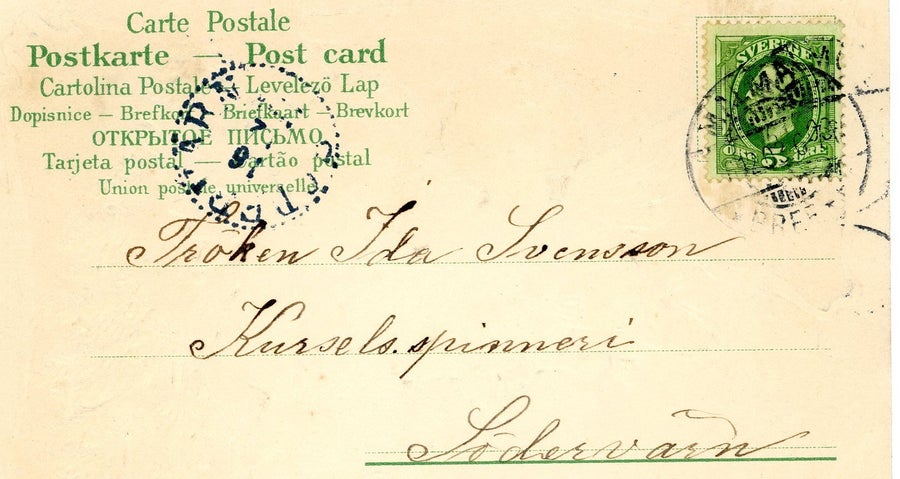 Carte Postale
Postkarte — Post card
Cartolina Postale — Levelezö Lap
Dopisnice — Brefkort — Briefkaart — Brevkort
ОТКРЫТОЕ ПИСЬМО
Tarjeta postal — Cartão postal
Union postale universelle
SVERIGE
FEM
ÖRE
Fröken Ida Svensson
Kursels.spinneri
Södervärn